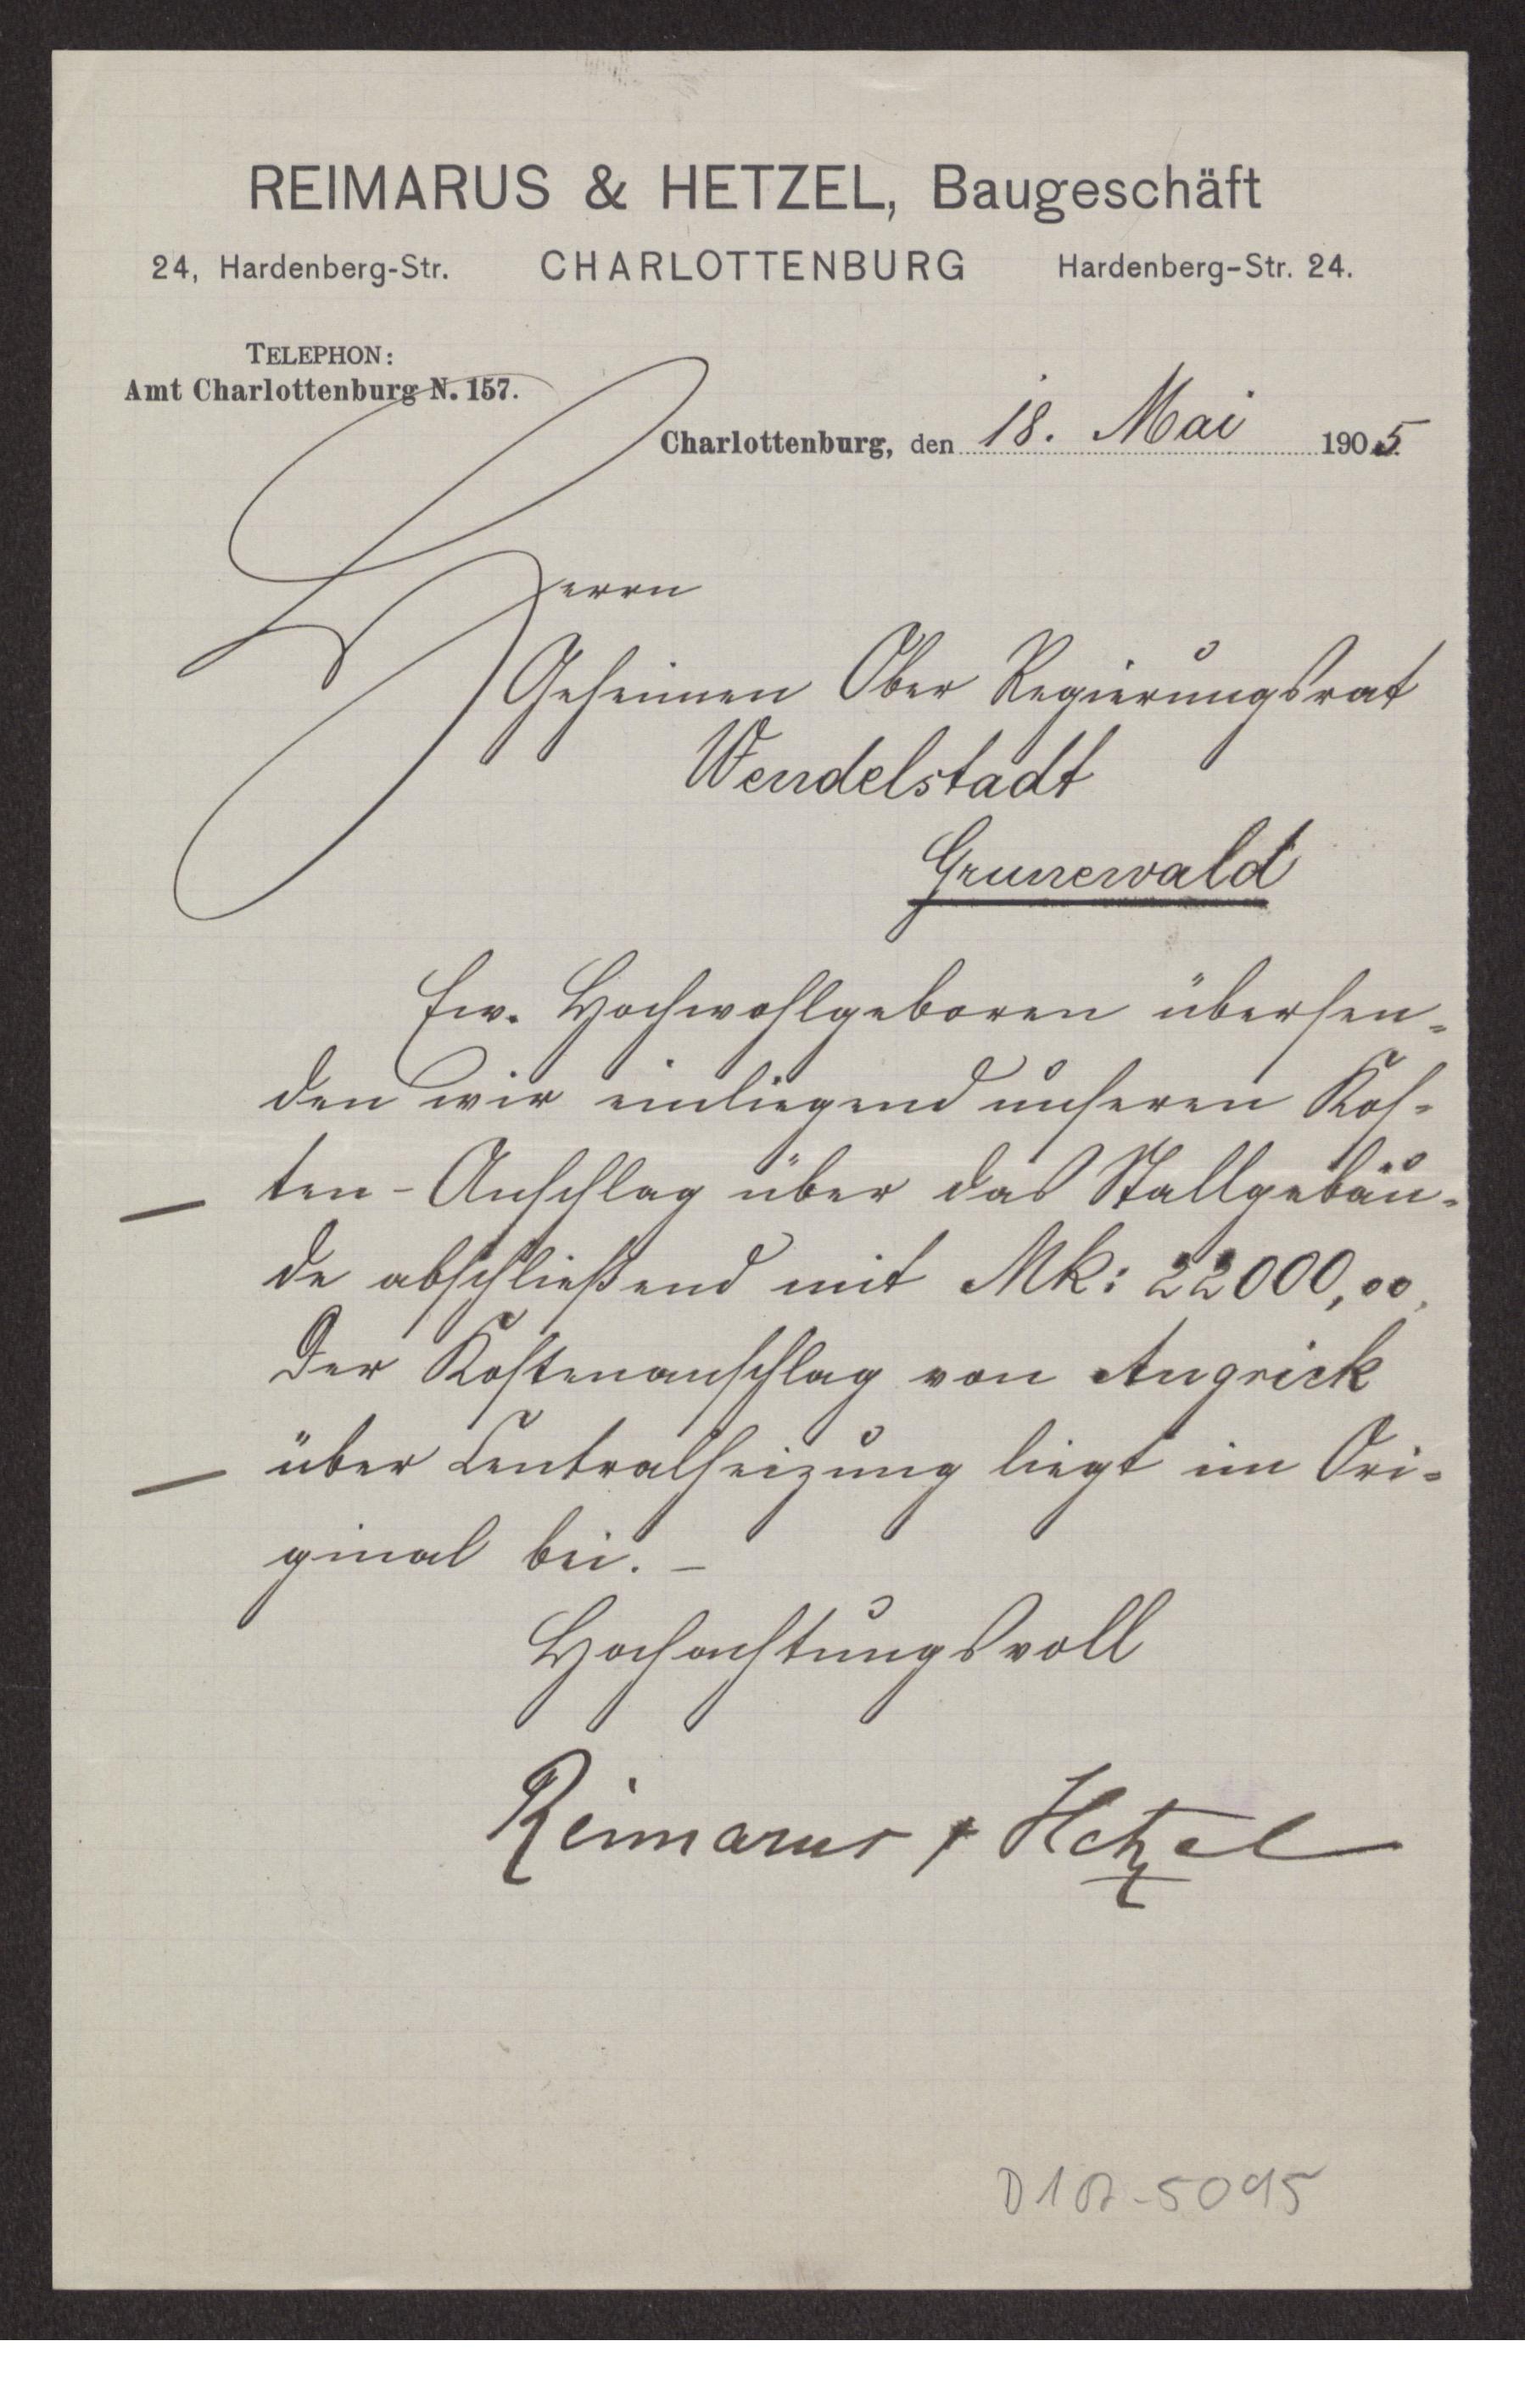 REIMARUS & HETZEL, Baugeschäft
24, Hardenberg-Str. CHARLOTTENBURG Hardenberg-Str. 24.
TELEPHON:
Amt Charlottenburg N. 157.
Charlottenburg, den 18. Mai 1905
Herrn
Geheimen Ober Regierungsrat
Wendelstadt
Grunewald
Ew. Hochwohlgeboren übersen-
den wir einliegend unseren Kos-
ten-Anschlag über das Stallgebäu-
de abschließend mit Mk: 22000,00.
Der Kostenanschlag von Angrick
über Centralheizung liegt im Ori-
ginal bei. –
Hochachtungsvoll
Reimarus & Hetzel